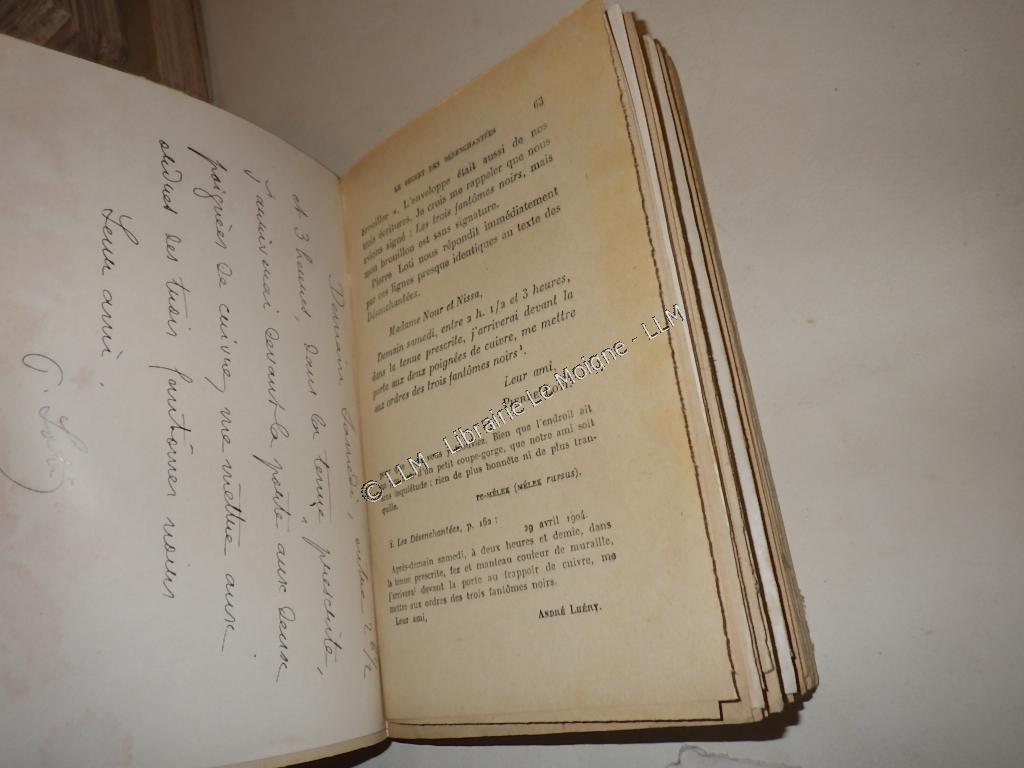 Demain samedi, entre 2 h 1/2
et 3 heures, dans la tenue prescrite,
j'arriverai devant la porte aux deux
poignées de cuivre, me mettre aux
ordres des trois fantômes noirs
Leur ami.
P. Loti
63
LE SECRET DES DÉSENCHANTÉES
brouiller ». L'enveloppe était aussi de nos
trois écritures. Je crois me rappeler que nous
avions signé : Les trois fantômes noirs, mais
mon brouillon est sans signature.
Pierre Loti nous répondit immédiatement
par ces lignes presque identiques au texte des
Désenchantées.
Madame Nour et Nissa,
Demain samedi, entre 2 h. 1/2 et 3 heures,
dans la tenue prescrite, j'arriverai devant la
porte aux deux poignées de cuivre, me mettre
aux ordres des trois fantômes noirs¹.
Leur ami,
Pierre Loti
vous Bien que l'endroit ait
d'un petit coupe-gorge, que notre ami soit
sans inquiétude : rien de plus honnête ni de plus tran-
quille.
(MÉLEK rursus).
1. Les Désenchantées, p. 162 :
29 avril 1904.
Après-demain samedi, à deux heures et demie, dans
la tenue prescrite, fez et manteau couleur de muraille,
j'arriverai devant la porte au frappoir de cuivre, me
mettre aux ordres des trois fantômes noirs.
Leur ami,
ANDRÉ LHÉRY.
© LLM - Librairie Le Moigne - LLM